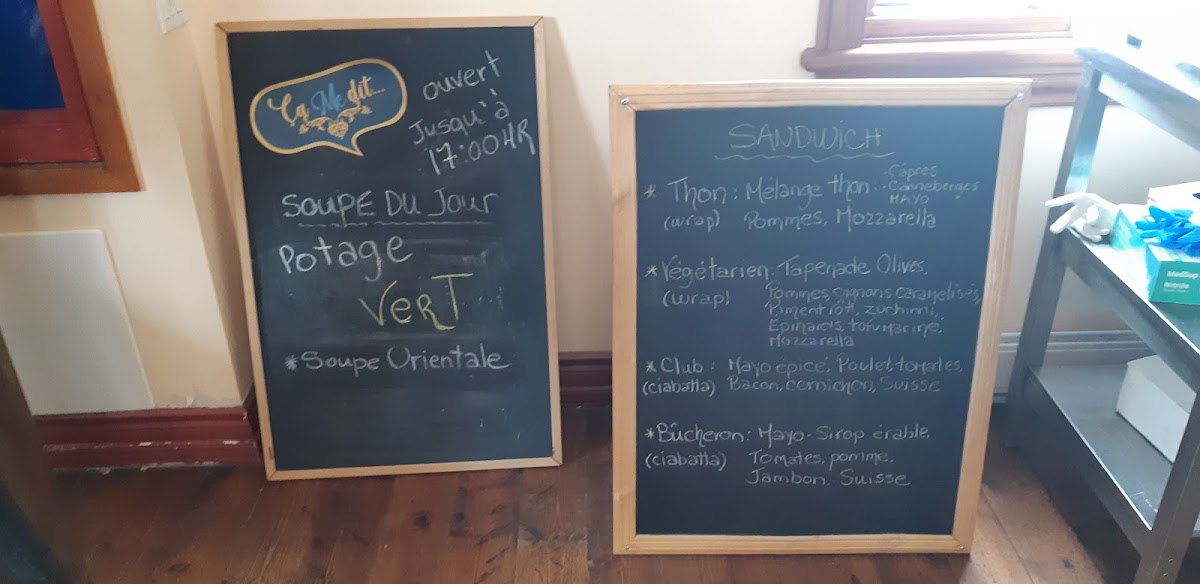 Ça Me dit...
ouvert
Jusqu'à
17:00HR
SOUPE DU JOUR
Potage
VERT
*Soupe Orientale
SANDWICH
* Thon: Mélange thon.
Câpres
Canneberges
MAYO
(wrap) Pommes, Mozzarella
*Végétarien: Tapenade Olives,
(wrap) Pommes, oignons caramélisés,
Piment rôti, zuchinni,
Epinards, tofu mariné,
Mozzarella
*Club: Mayo épicé, Poulet, tomates,
(ciabatta) Bacon, cornichon, Suisse
*Bûcheron: Mayo-Sirop érable,
(ciabatta) Tomates, pomme,
Jambon, Suisse
MedSup
Nitrile